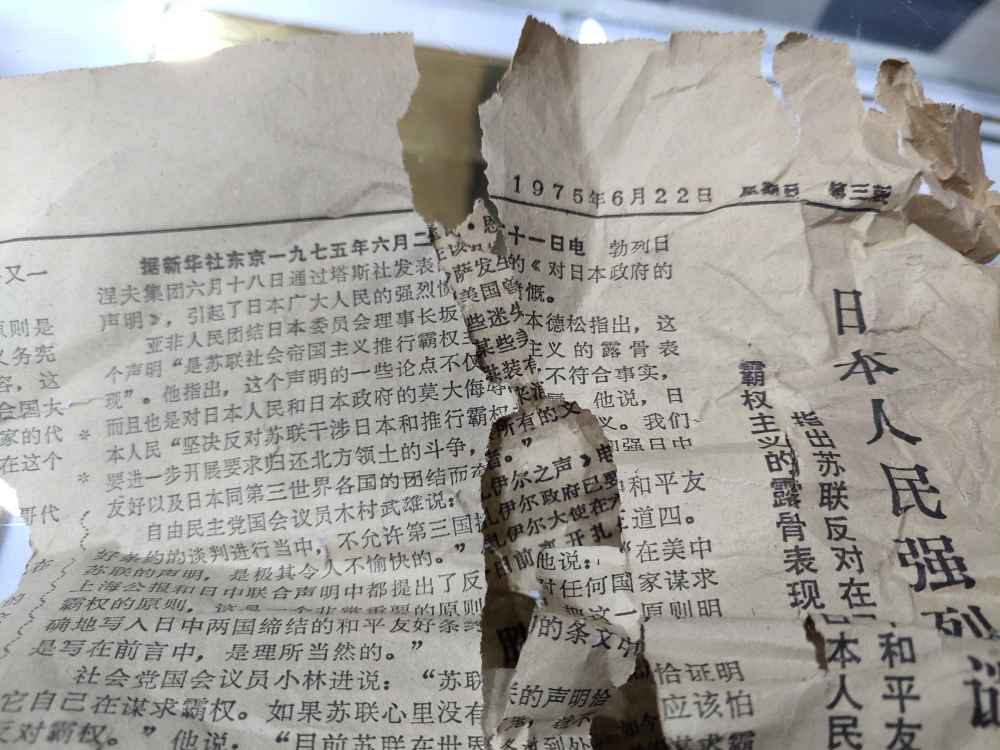 1975年6月22日 星期日 第三版
日本人民强烈
指出苏联反对在
和平友
霸权主义的露骨表现
本人民
据新华社东京一九七五年六月二十一日电 勃列日
涅夫集团六月十八日通过塔斯社发表的《对日本政府的
声明》，引起了日本广大人民的强烈愤慨。
亚非人民团结日本委员会理事长坂本德松指出，这
个声明“是苏联社会帝国主义推行霸权主义的露骨表
现”。他指出，这个声明的一些论点不仅不符合事实，
而且也是对日本人民和日本政府的莫大侮辱。他说，日
本人民“坚决反对苏联干涉日本和推行霸权主义。我们
要进一步开展要求归还北方领土的斗争，加强日中
友好以及日本同第三世界各国的团结
自由民主党国会议员木村武雄说：
和平友
好条约的谈判进行当中，不允许第三国
道四。
苏联的声明，是极其令人不愉快的。”
他说：“在美中
上海公报和日中联合声明中都提出了反对任何国家谋求
霸权的原则，这是一个非常重要的原则
把这一原则明
确地写入日中两国缔结的和平友好条约的条文
是写在前言中，是理所当然的。”
社会党国会议员小林进说：“苏联的声明恰恰证明
它自己在谋求霸权。如果苏联心里没有
应该怕
反对霸权。”他说：“目前苏联在世界
谋求霸
又一
原则是
义务宪
容，这
会国大
家的代
在这个
哥代
在
扎伊尔之声》电
扎伊尔政府已要
扎伊尔大使在
日前离开扎
所有的
美国
萨发生的
些迷失
某些美